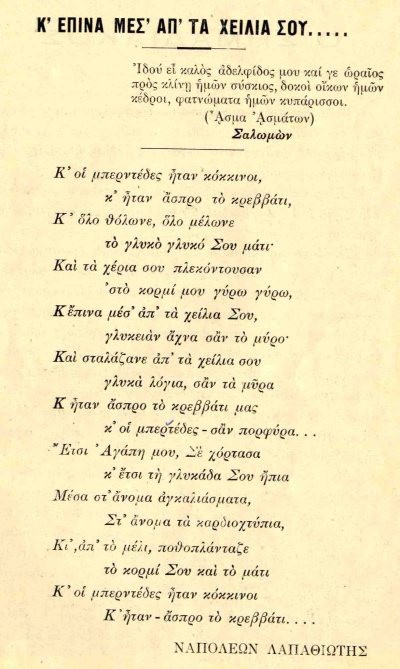 Κ' ΕΠΙΝΑ ΜΕΣ' ΑΠ' ΤΑ ΧΕΙΛΙΑ ΣΟΥ.....
Ἰδού εἶ καλὸς ἀδελφίδος μου καί γε ὡραῖος
πρὸς κλίνῃ ἡμῶν σύσκιος, δοκοὶ οἴκων ἡμῶν
κέδροι, φατνώματα ἡμῶν κυπάρισσοι.
(Ἆσμα Ἀσμάτων)
Σαλομὼν
Κ' οἱ μπερντέδες ἦταν κόκκινοι,
κ' ἦταν ἄσπρο τὸ κρεββάτι,
Κ' ὅλο θόλωνε, ὅλο μέλωνε
τὸ γλυκὸ γλυκό Σου μάτι·
Καὶ τὰ χέρια σου πλεκόντουσαν
'στὸ κορμί μου γύρω γύρω,
Κ' ἔπινα μέσ' ἀπ' τὰ χείλια Σου,
γλυκειὰν ἄχνα σὰν τὸ μύρο·
Καὶ σταλάζανε ἀπ' τὰ χείλια σου
γλυκὰ λόγια, σὰν τὰ μῦρα
Κ' ἦταν ἄσπρο τὸ κρεββάτι μας
κ' οἱ μπερτέδες - σὰν πορφύρα...
Ἔτσι Ἀγάπη μου, Σὲ χόρτασα
κ' ἔτσι τὴ γλυκάδα Σου ἤπια
Μέσα στ' ἄνομα ἀγκαλιάσματα,
Στ' ἄνομα τὰ καρδιοχτύπια,
Κι', ἀπ' τὸ μέλι, ποθοπλάνταζε
τὸ κορμί Σου καὶ τὸ μάτι
Κ' οἱ μπερντέδες ἦταν κόκκινοι
Κ' ἦταν - ἄσπρο τὸ κρεββάτι....
ΝΑΠΟΛΕΩΝ ΛΑΠΑΘΙΩΤΗΣ